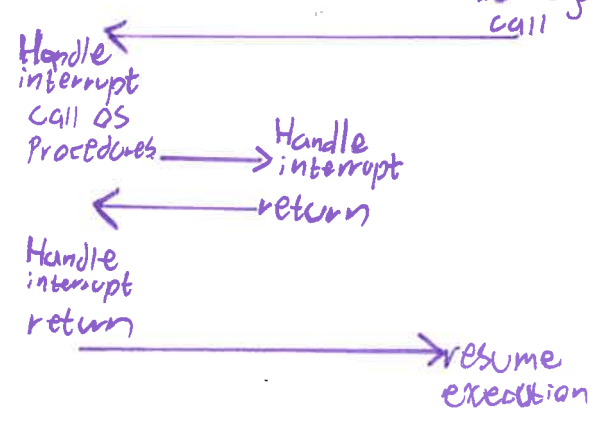 call
Handle
interrupt
call OS
Procedures
Handle
interrupt
return
Handle
interrupt
return
resume
execution